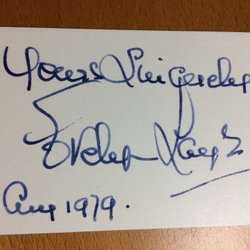 Yours Sincerely
Evelyn Laye
Aug 1979.